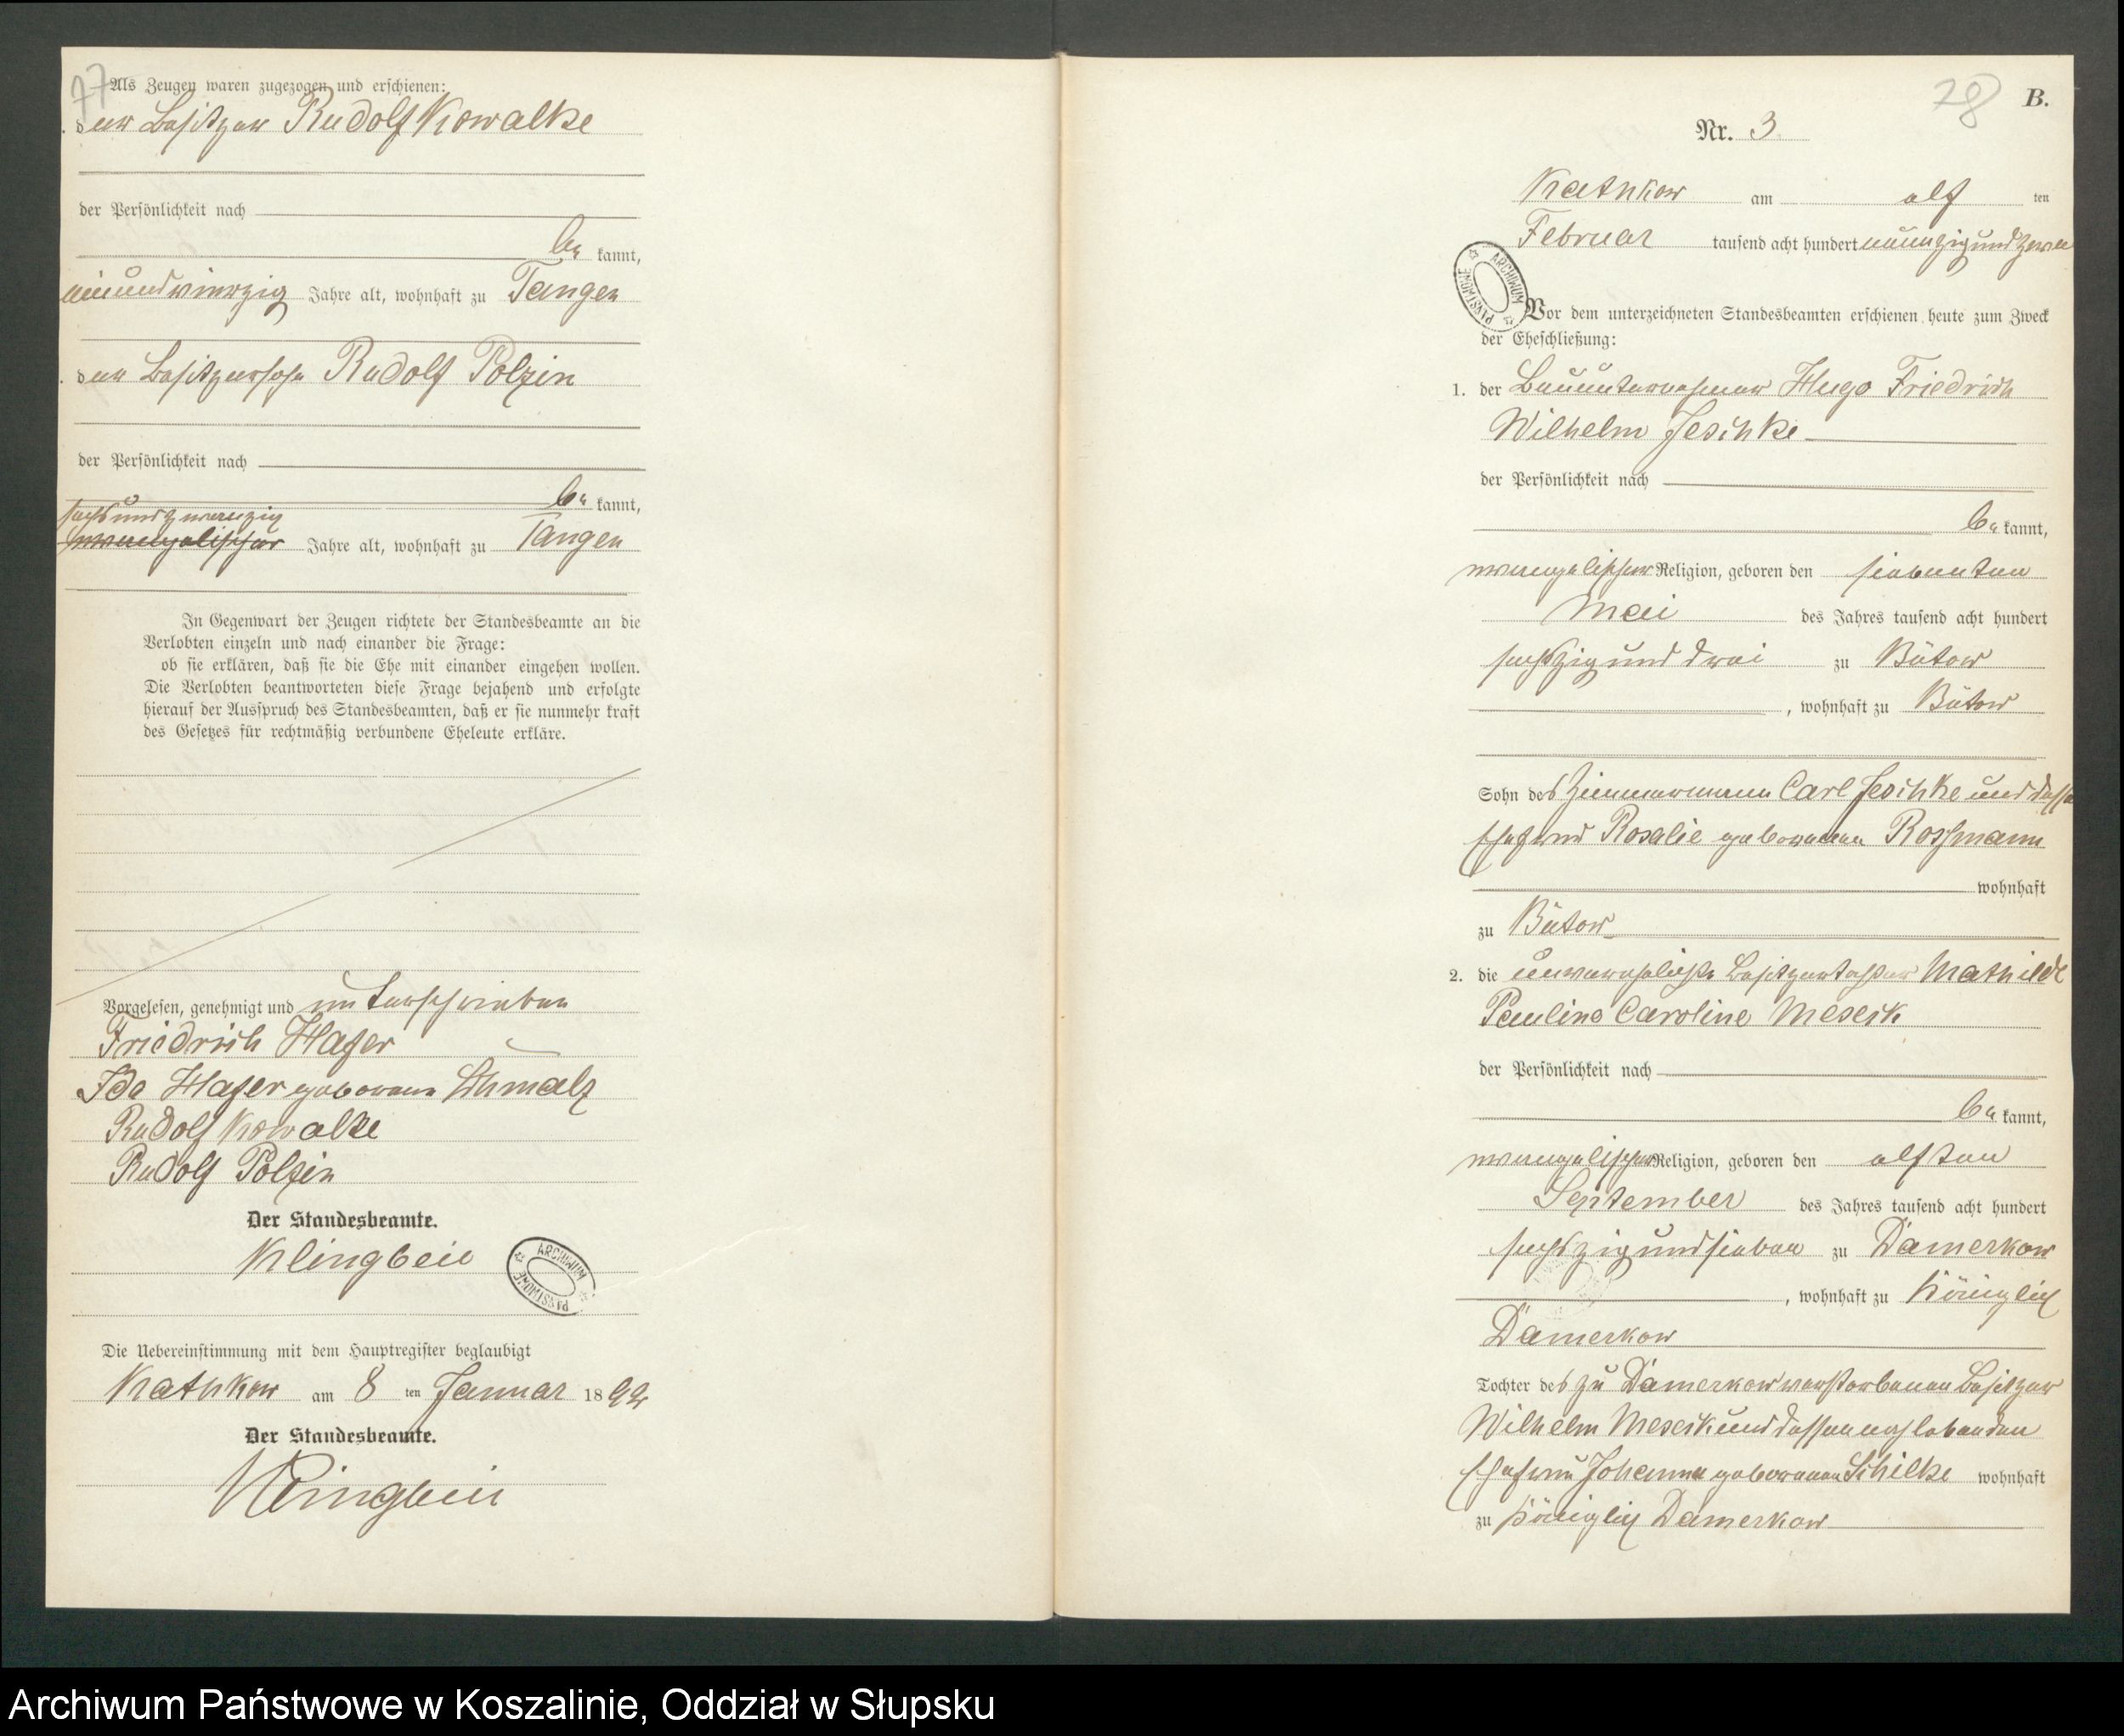 77
Als Zeugen waren zugezogen und erschienen:
der Besitzer Rudolf Kowalke
der Persönlichkeit nach
be kannt,
neunundvierzig Jahre alt, wohnhaft zu Tangen
der Besitzersohn Rudolf Polzin
der Persönlichkeit nach
be kannt,
sechsundzwanzig
evangelischer Jahre alt, wohnhaft zu Tangen
In Gegenwart der Zeugen richtete der Standesbeamte an die
Verlobten einzeln und nach einander die Frage:
ob sie erklären, daß sie die Ehe mit einander eingehen wollen.
Die Verlobten beantworteten diese Frage bejahend und erfolgte
hierauf der Ausspruch des Standesbeamten, daß er sie nunmehr kraft
des Gesetzes für rechtmäßig verbundene Eheleute erkläre.
Vorgelesen, genehmigt und unterschrieben
Friedrich Hafer
Ida Hafer geborene Schmalz
Rudolf Kowalke
Rudolf Polzin
Der Standesbeamte.
Klingbeil
ARCHIWUM PAŃSTWOWE
Die Uebereinstimmung mit dem Hauptregister beglaubigt
Kathkow am 8 ten Januar 1892
Der Standesbeamte.
Klingbeil
78
B.
Nr. 3.
Kathkow am elf ten
Februar tausend acht hundert neunzig und zwei
ARCHIWUM PAŃSTWOWE
Vor dem unterzeichneten Standesbeamten erschienen heute zum Zweck
der Eheschließung:
1. der Bauunternehmer Hugo Friedrich
Wilhelm Jeschke
der Persönlichkeit nach
be kannt,
evangelischer Religion, geboren den siebenten
Mai des Jahres tausend acht hundert
sechszig und drei zu Bütow
, wohnhaft zu Bütow
Sohn des Zimmermann Carl Jeschke und dessen
Ehefrau Rosalie geborenen Rossmann
wohnhaft
zu Bütow
2. die unverehelichte Besitzertochter Mathilde
Pauline Caroline Mesech
der Persönlichkeit nach
be kannt,
evangelischer Religion, geboren den elften
September des Jahres tausend acht hundert
sechszig und sieben zu Damerkow
, wohnhaft zu Königlich
Damerkow
Tochter des zu Damerkow verstorbenen Besitzer
Wilhelm Mesech und dessen nachlebenden
Ehefrau Johanna geborenen Schilke wohnhaft
zu Königlich Damerkow
Archiwum Państwowe w Koszalinie, Oddział w Słupsku